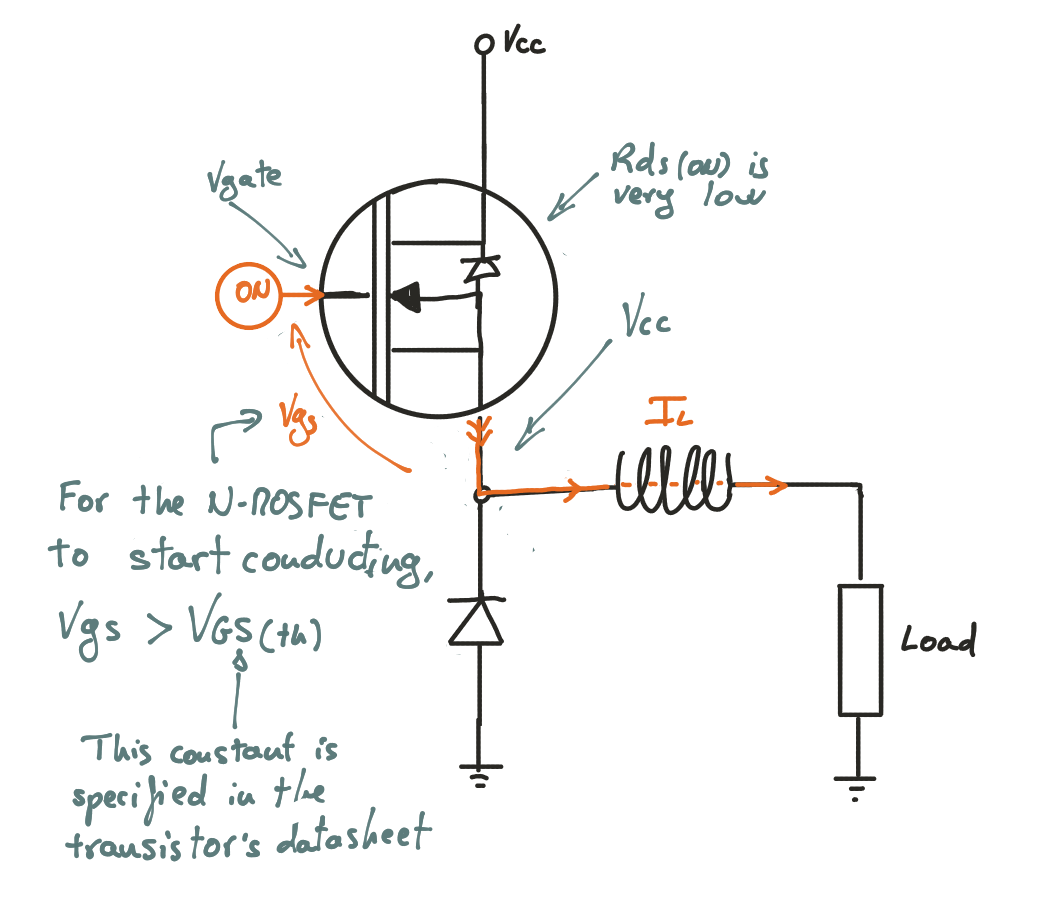 Vcc
Vgate
Rds(ON) is
very low
ON
Vcc
Vgs
IL
For the N-MOSFET
to start conducting,
Vgs > VGS(th)
Load
This constant is
specified in the
transistor's datasheet